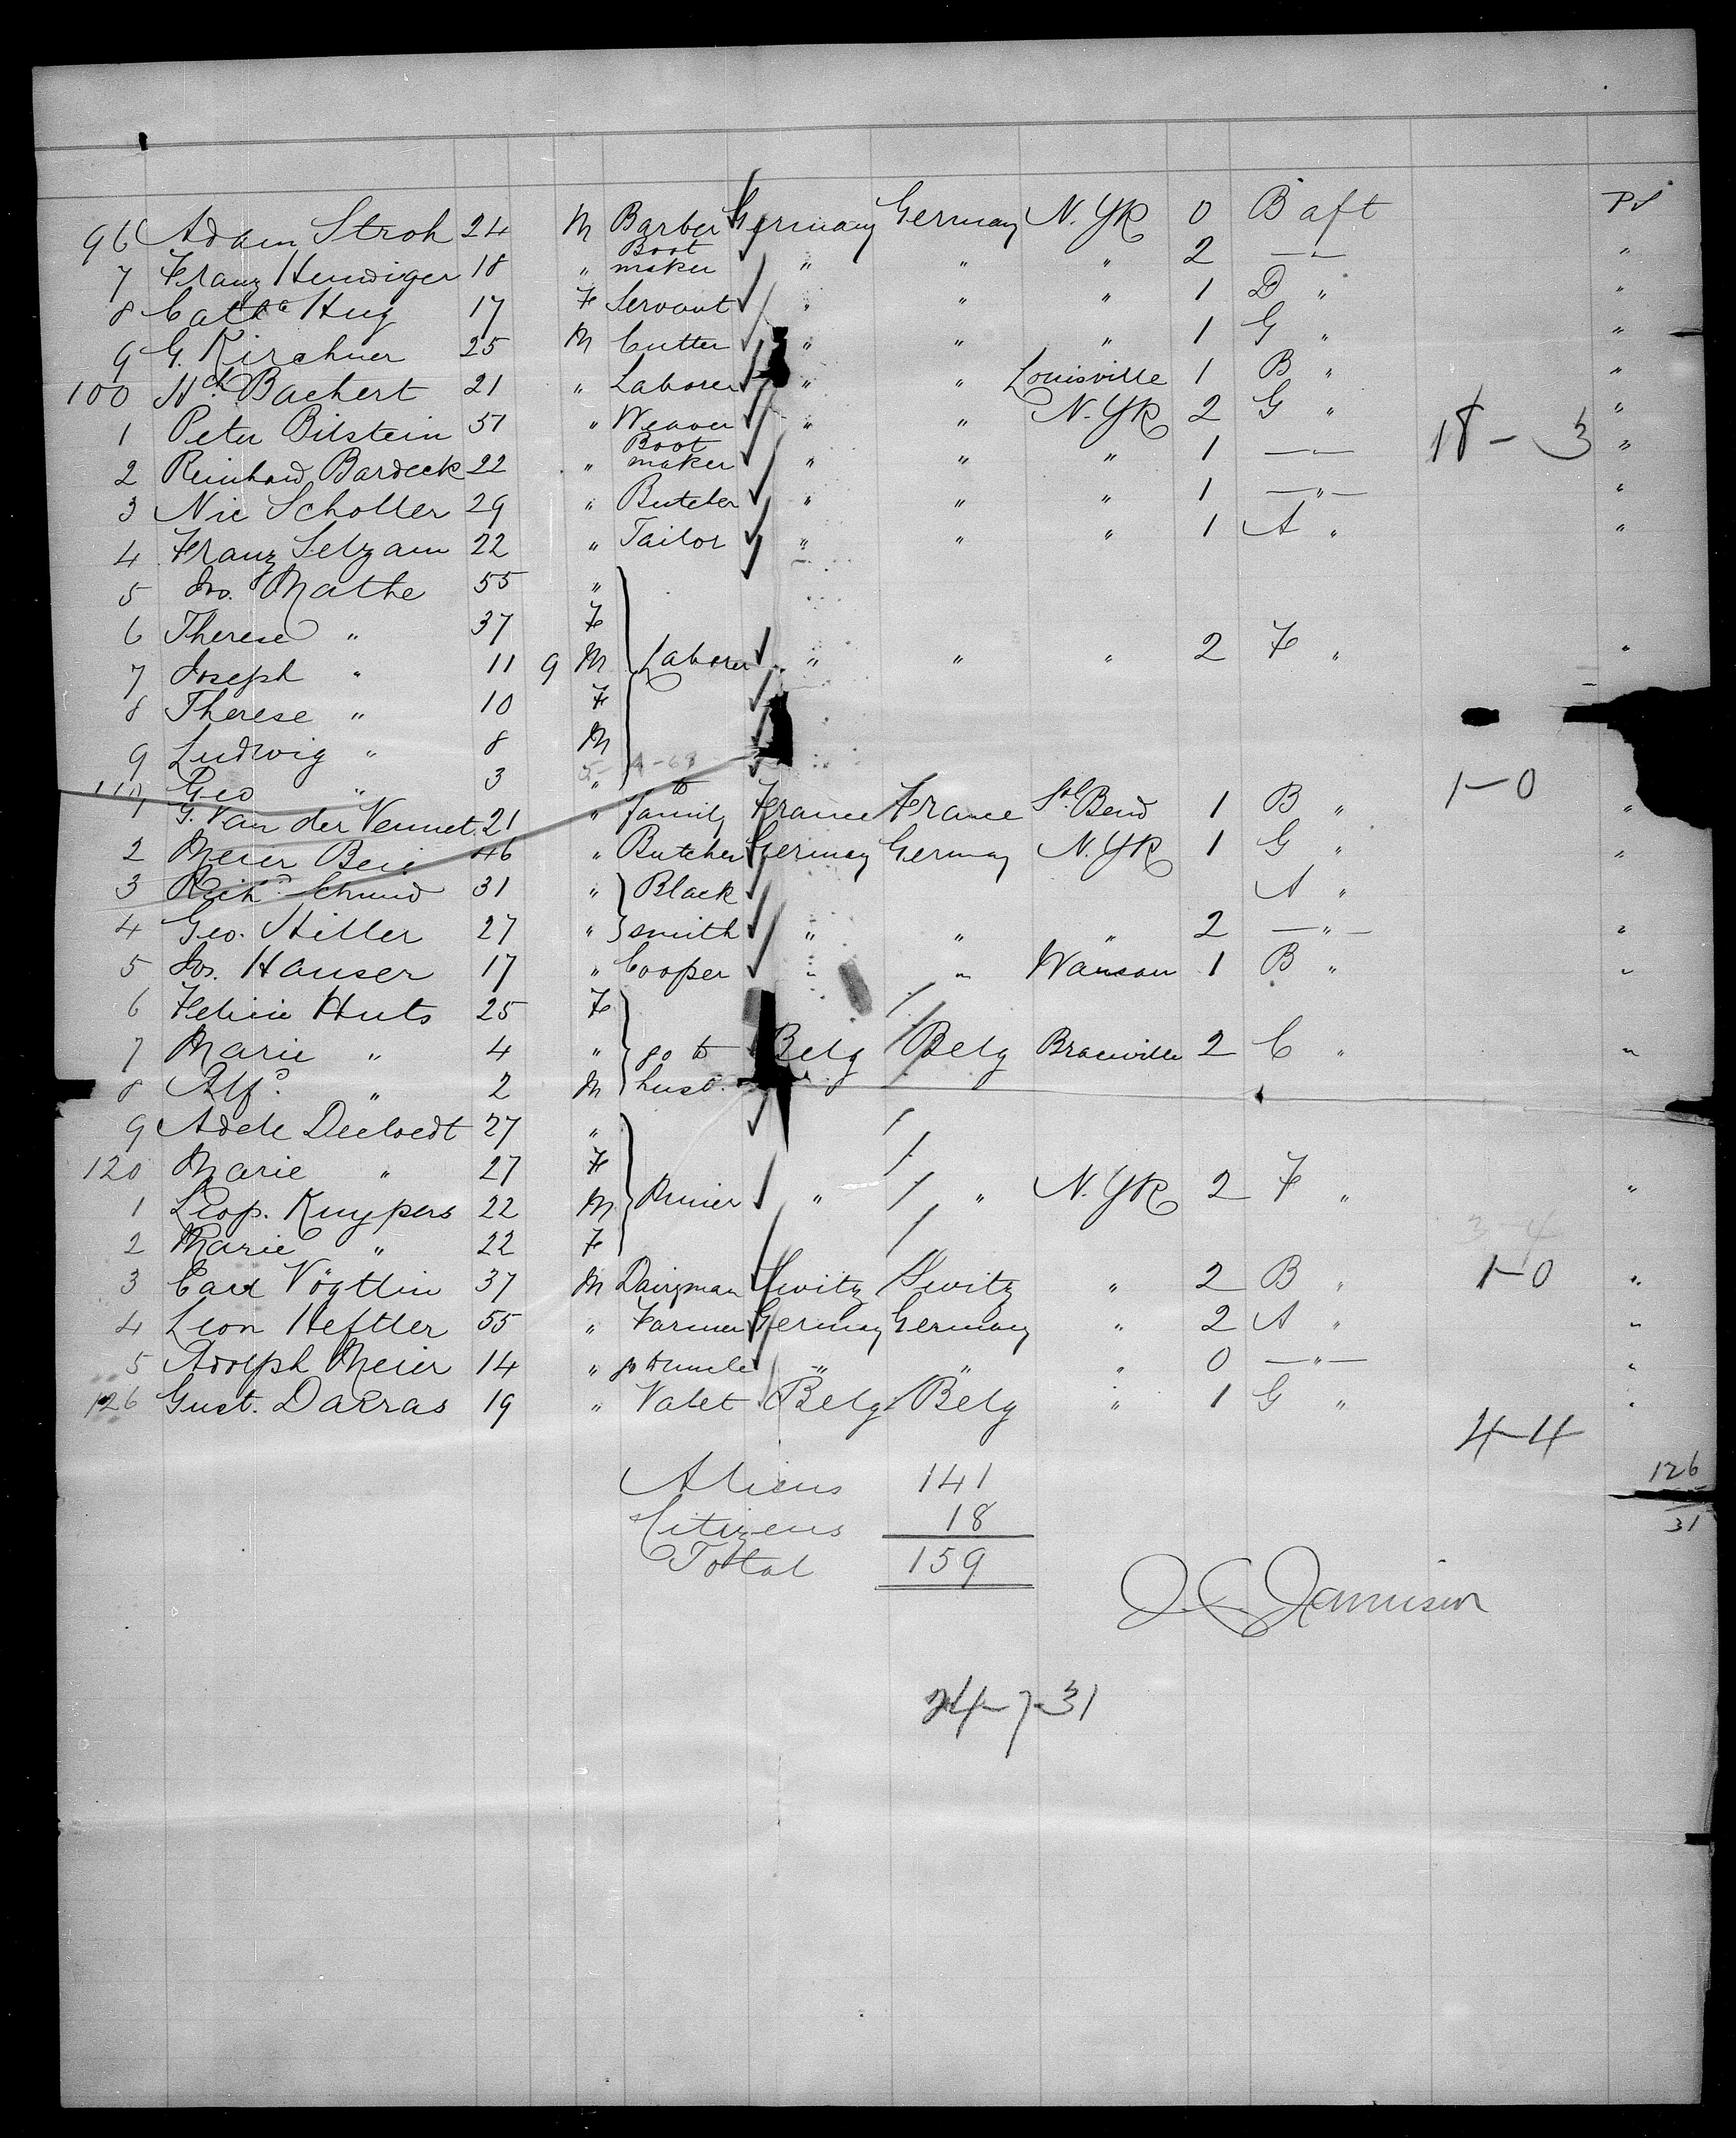 96 Adam Stroh 24 M Barber Germany Germany N. YK 0 B aft
7 Franz Hendiger 18 " Boot maker " " " 2 —"— "
8 Cath Hug 17 F Servant " " " 1 D " "
9 G. Kirchner 25 M Cutter " " " 1 G " "
100 Hch Bachert 21 " Laborer " " Louisville 1 B " "
1 Peter Bilstein 51 " Weaver " " N. YK 2 G " "
18 - 3
2 Reinhard Bardeck 22 " Boot maker " " " 1 —"— "
3 Nic Scholler 29 " Butcher " " " 1 —"— "
4 Franz Selzam 22 " Tailor " " " 1 A " "
5 Jos. Mathe 55 "
6 Therese " 37 F
7 Joseph " 11 9 M Laborer " " " 2 F " "
8 Therese " 10 F
9 Ludwig " 8 M
110 Geo " 3 "
1-0
1 G. Van der Vennet 21 " to family France France Sth Bend 1 B " "
2 Meier Bei 46 " Butcher Germany Germany N. YK 1 G " "
3 Richd. Schmid 31 " Black A "
4 Geo. Hiller 27 " smith " " " 2 —"— "
5 Jos. Hauser 17 " Cooper " " Wausau 1 B " "
6 Felicie Huts 25 F
7 Marie " 4 " go to Belg Belg 2 C " "
8 Alf. " 2 M husb.
9 Adele 27 "
120 Marie " 27 F
1 Leop. Kuypers 22 M " " N. YK 2 F " "
2 Marie " 22 F
3-4
3 Carl Vögtlin 37 M Dairyman Switz Switz " 2 B " 1-0 "
4 Leon Heftler 55 " Farmer Germany Germany " 2 A " "
5 Adolph Meier 14 " go to uncle " " " 0 —"— "
126 Gust. Darras 19 " Valet Belg Belg " 1 G " "
4-4
Aliens 141
126
Citizens 18
31
Total 159
Jamison
24-7-31